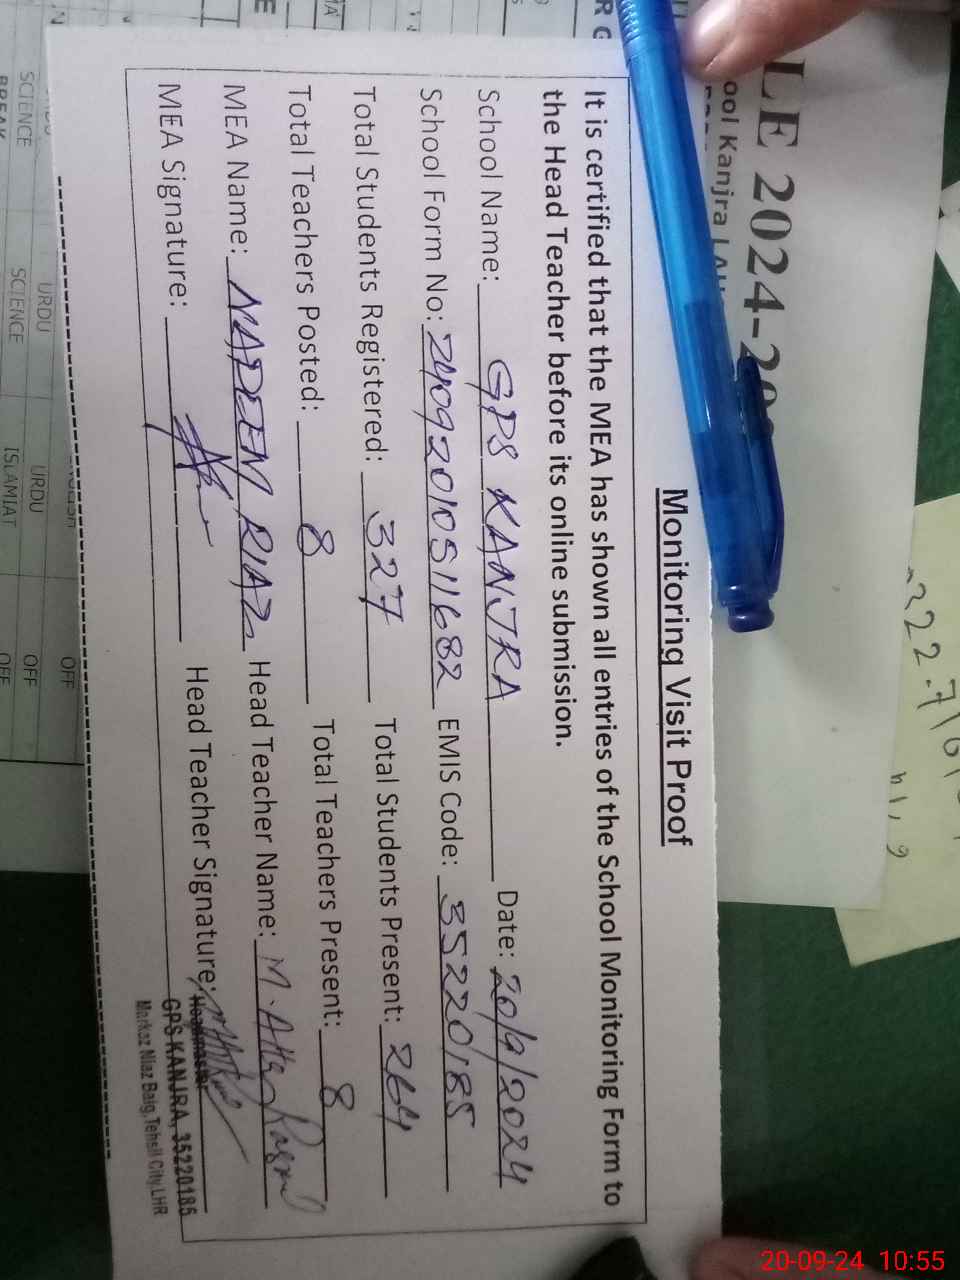 Monitoring Visit Proof
It is certified that the MEA has shown all entries of the School Monitoring Form to
the Head Teacher before its online submission.
School Name: GPS KANJRA Date: 20/9/2024
School Form No: 24092010511682 EMIS Code: 35220185
Total Students Registered: 327 Total Students Present: 264
Total Teachers Posted: 8 Total Teachers Present: 8
MEA Name: NADEEM RIAZ Head Teacher Name: M. Atta
MEA Signature: Head Teacher Signature:
Headmaster
GPS KANJRA, 35220185
Markaz Niaz Baig, Tehsil City, LHR
LE 2024-20
ool Kanjra LAH
R G
SCIENCE
BREAK
URDU
SCIENCE
URDU
ISLAMIAT
OFF
OFF
OFF
322.7
20-09-24 10:55